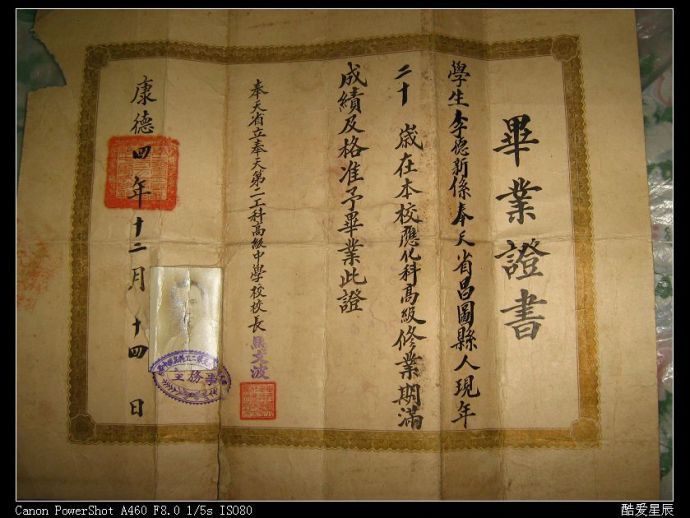 畢業證書
學生李德新係奉天省昌圖縣人現年
二十 歲在本校應化科高級修業期滿
成績及格准予畢業此證
奉天省立奉天第二工科高級中學校校長
康德四年十二月十四日
主務事
Canon PowerShot A460 F8.0 1/5s ISO80
酷爱星辰